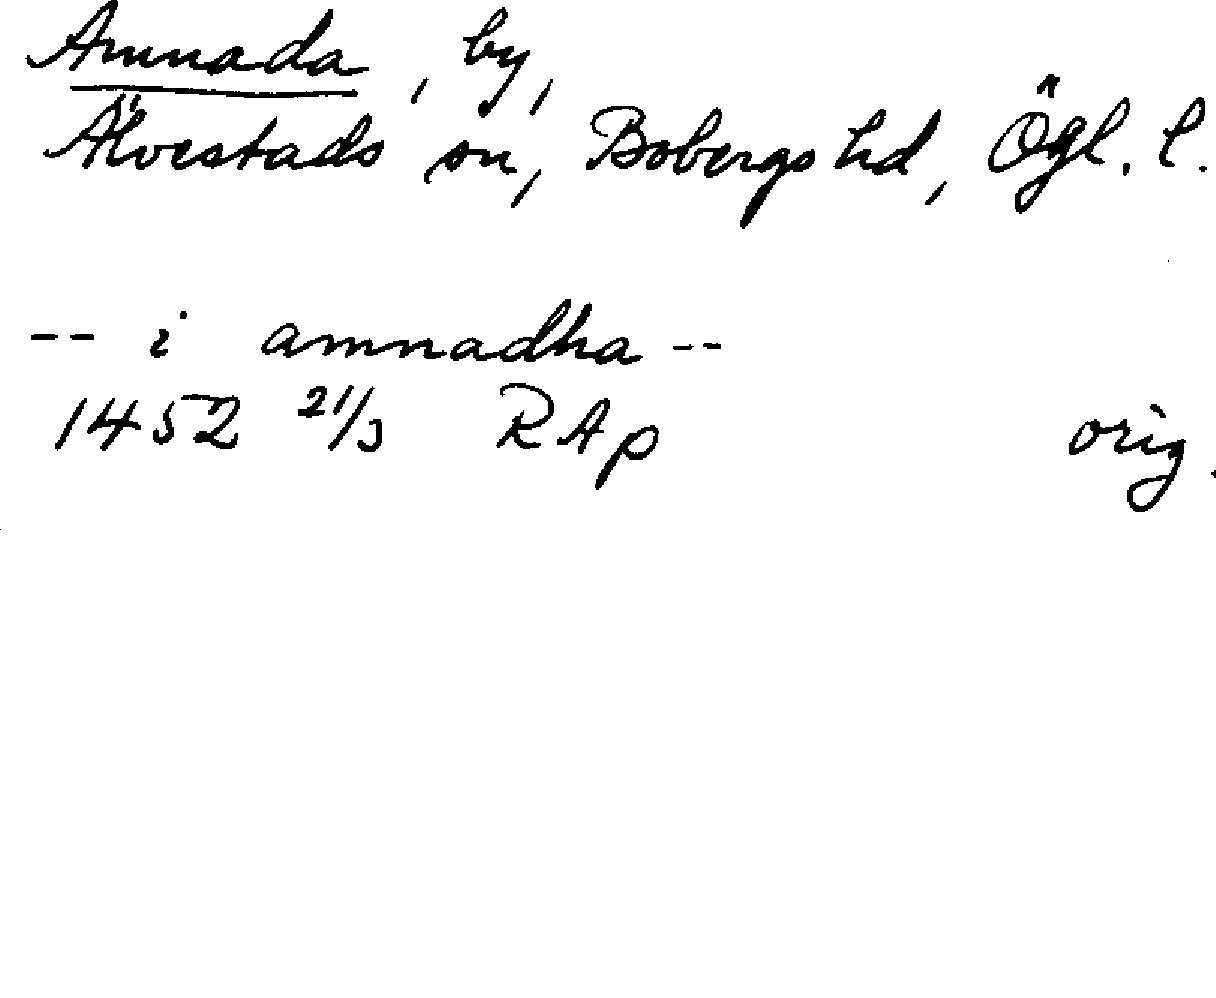 Amnada, by,
Älvestads sn, Bobergs hd, Ögl. l.
-- i amnadha --
1452 21/3 RAp orig.